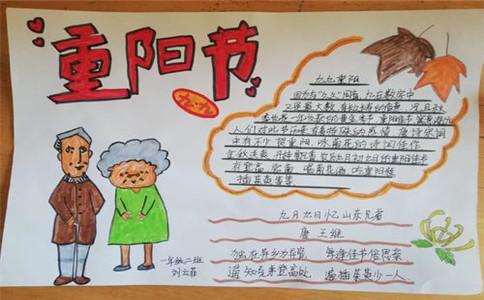 重阳节
九·九
九九重阳
因为与“久久”同音,九在数字中
又是最大数,有长久长寿的含意,况且秋
季也是一年收获的黄金季节,重阳佳节,寓意深
人们对此节历来有着特殊的感情,唐诗宋词
中有不少贺重阳,咏菊花的诗词佳作
登高赏菊
插茱萸等等
九月九日忆山东兄弟
唐 王维
独在异乡为异客 每逢佳节倍思亲
遥知兄弟登高处 遍插茱萸少一人
一年级二班